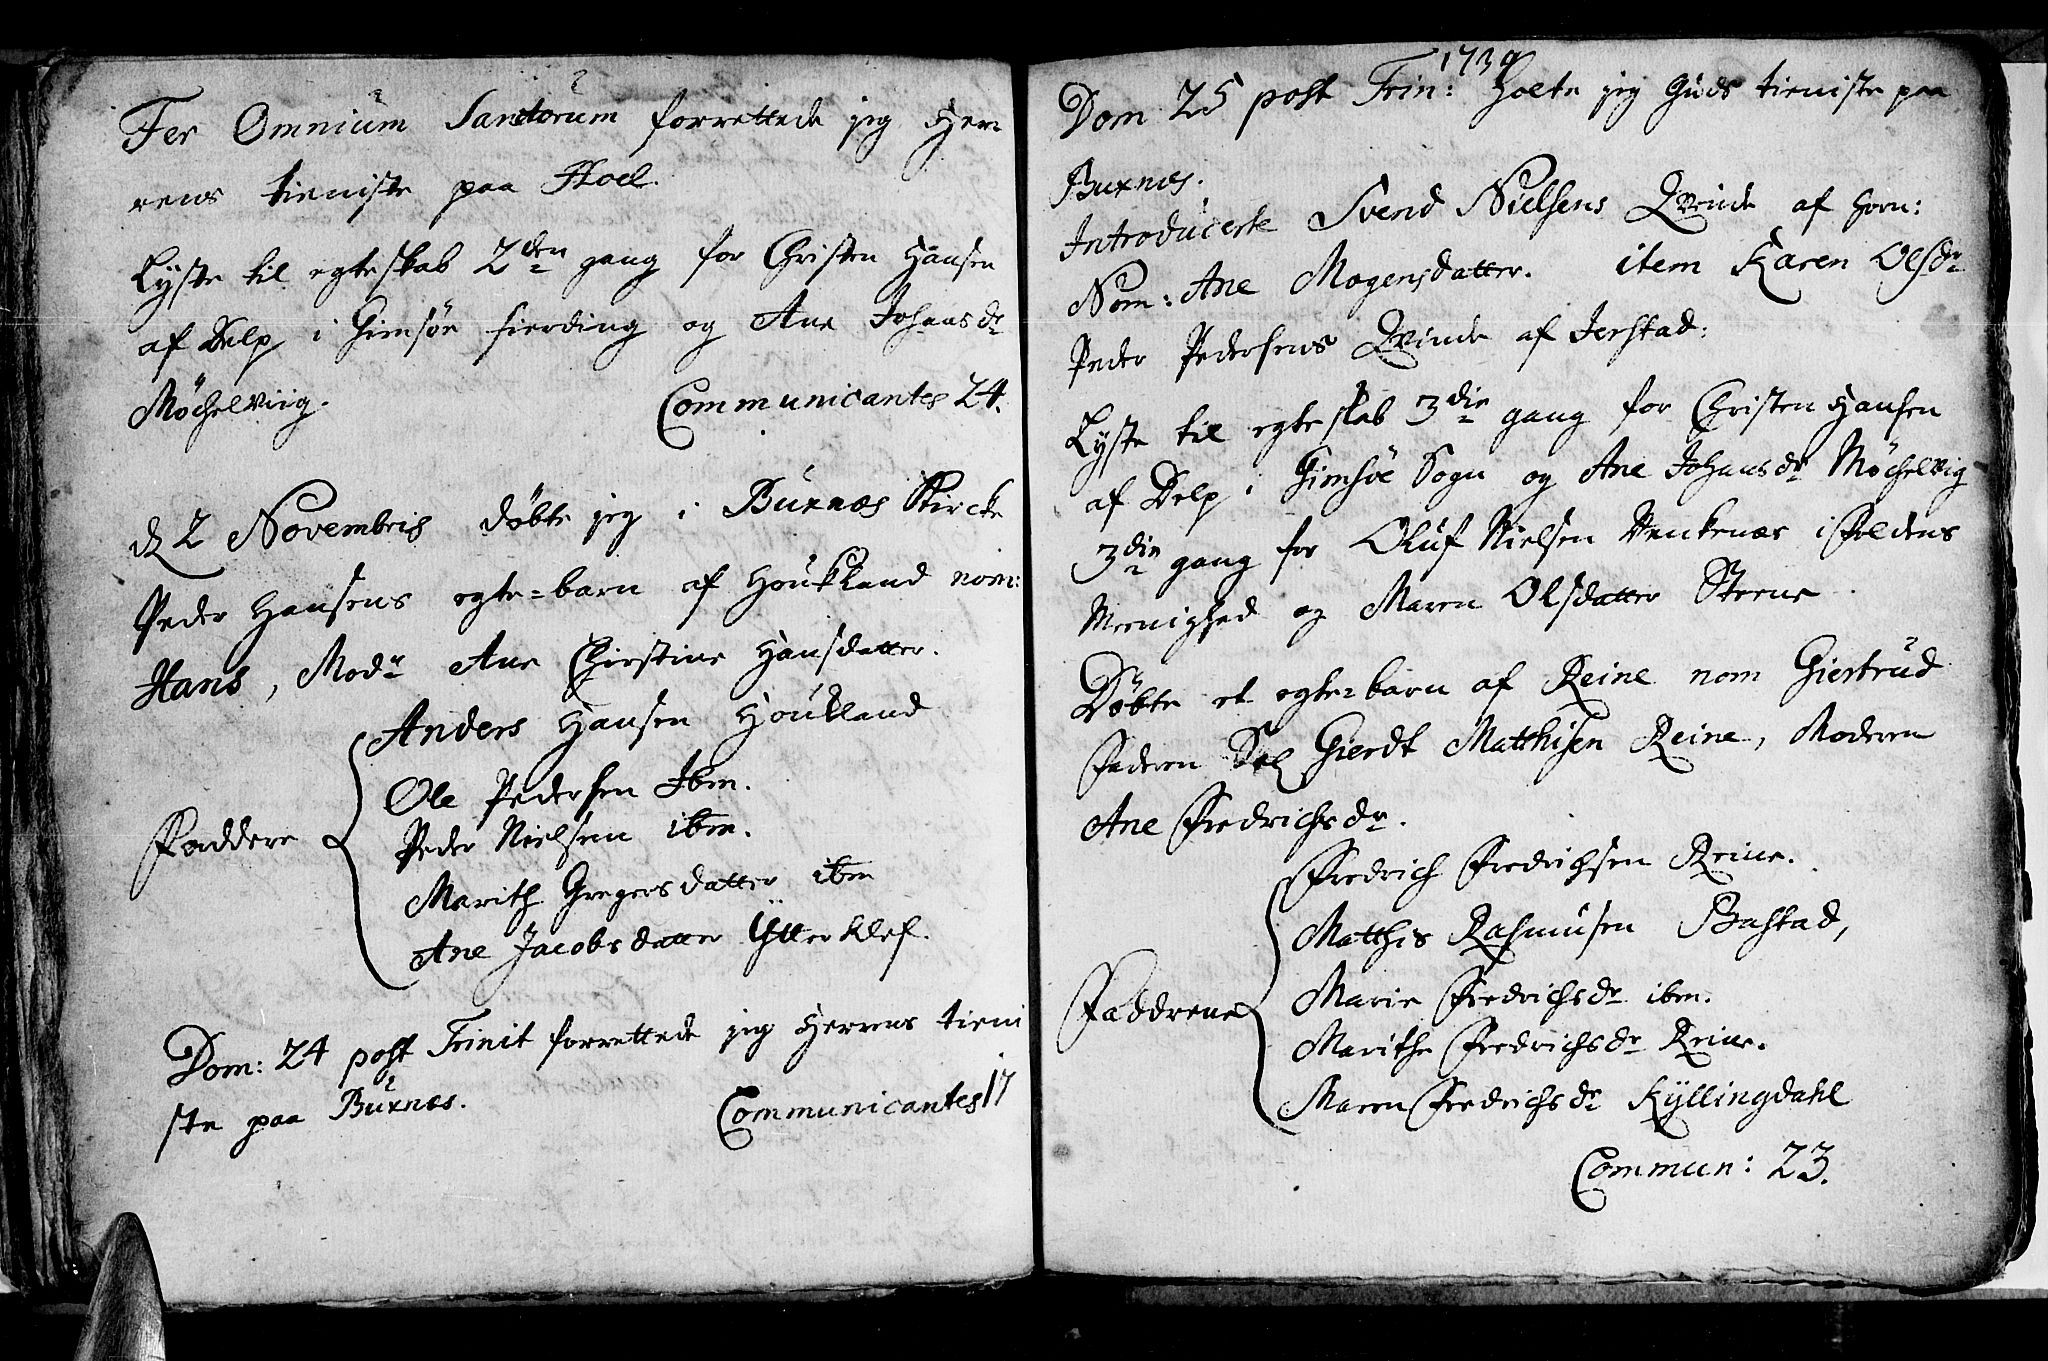 Fer Omnium Sanctorum forrettede jeg Her=
rens tieniste paa Hoel.
Lyste til egteskab 2den gang for Christen Hansen
af Delp i Gimsöe fierding og Ane Johansdr
Möchelviig. Communicantes 24.
d 2 Novembris döbte jeg i Buxnæs Kircke
Peder Hansens egte=barn af Houkland nom:
Hans, Modr Ane Christine Hansdatter.
Anders Hansen Houkland
Ole Pedersen Iben.
Peder Nielsen iben.
Faddere
Marith Gregersdatter iben
Ane Jacobsdatter Ytterklef.
Dom: 24 post Trinit forrettede jeg Herrens tieni
ste paa Buxnæs. Communicantes 17
1739
Dom 25 post Trin: Holte jeg Guds tieniste paa
Buxnæs.
Introducerte Svend Nielsens Qvinde af Horn:
Nom: Ane Mogensdatter. item Karen Olsdr
Peder Pedersens Qvinde af Jerstad:
Lyste til egteskab 3die gang for Christen Hansen
af Delp i Gimsöe Sogn og Ane Johansdr Möchelvig
3die gang for Oluf Nielsen Venkenæs i Foldens
Meenighed og Maren Olsdatter Steene.
Döbte et egte=barn af Reine nom Giertrud
Faderen Sal Gierdt Matthisen Reine, Moderen
Ane Fredrichsdr.
Fredrich Fredrichsen Reine.
Matthis Rasmusen Bastad,
Marie Fredrichsdr iben.
Faddrene
Marithe Fredrichsdr Reine.
Maren Fredrichsdr Kyllingdahl
Commun: 23.